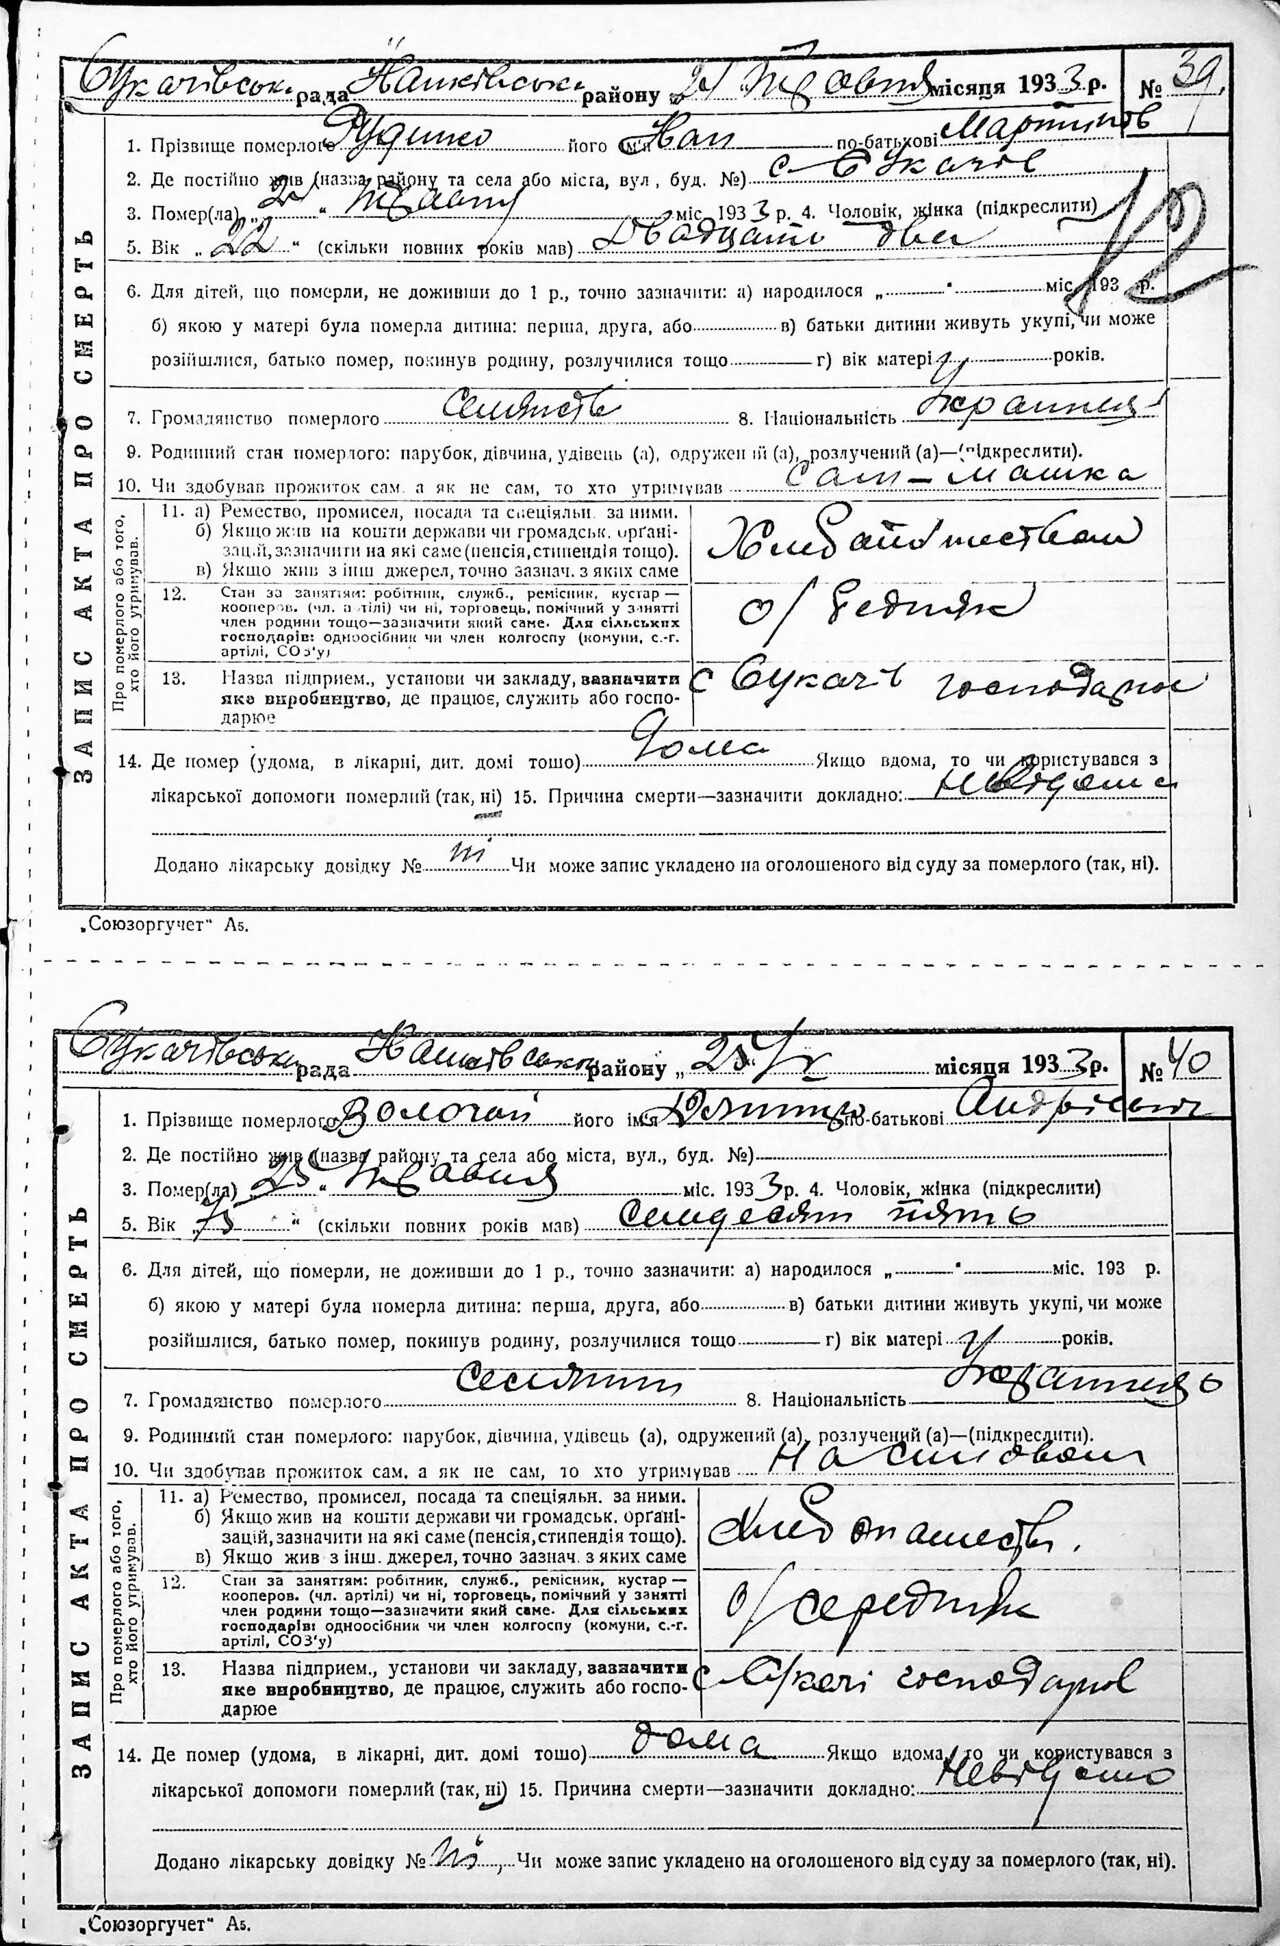 Сукачівська рада Іванківського району „21" Травня місяця 1933 р. № 39.
1. Прізвище померлого Руденко його ім'я Іван по-батькові Мартинов
2. Де постійно жив (назва району та села або міста, вул., буд. №) с Сукачів
3. Помер(ла) „21" травня міс. 1933 р. 4. Чоловік, жінка (підкреслити)
12
5. Вік „22" (скільки повних років мав) Двадцать два
6. Для дітей, що померли, не доживши до 1 р., точно зазначити: а) народилося „ " міс. 193 р.
б) якою у матері була померла дитина: перша, друга, або в) батьки дитини живуть укупі, чи може
розійшлися, батько помер, покинув родину, розлучилися тощо г) вік матері років.
7. Громадянство померлого 8. Національність Українець
9. Родинний стан померлого: парубок, дівчина, удівець (а), одружений (а), розлучений (а)—(підкреслити).
10. Чи здобував прожиток сам, а як не сам, то хто утримував
ЗАПИС АКТА ПРО СМЕРТЬ
Про померлого або того, хто його утримував.
11. а) Ремество, промисел, посада та спеціяльн. за ними.
б) Якщо жив на кошти держави чи громадськ. орґані-
зацій, зазначити на які саме (пенсія, стипендія тощо).
в) Якщо жив з інш джерел, точно зазнач. з яких саме
12. Стан за заняттям: робітник, служб., ремісник, кустар—
кооперов. (чл. артілі) чи ні, торговець, помічний у занятті
член родини тощо—зазначити який саме. Для сільських
господарів: одноосібник чи член колгоспу (комуни, с.-г.
артілі, СОЗ'у)
о/ бедняк
13. Назва підприєм., установи чи закладу, зазначити
яке виробництво, де працює, служить або госпо-
дарює
с Сукачів господарює
14. Де помер (удома, в лікарні, дит. домі тощо) дома Якщо вдома, то чи користувався з
лікарської допомоги померлий (так, ні) 15. Причина смерти—зазначити докладно: невідома
Додано лікарську довідку № ні Чи може запис укладено на оголошеного від суду за померлого (так, ні).
„Союзоргучет" А5.
Сукачівська рада Іванківського району „25" місяця 1933 р. № 40
1. Прізвище померлого Вологой його ім'я по-батькові Андрієвич
2. Де постійно жив (назва району та села або міста, вул., буд. №)
3. Помер(ла) 25 „ Травня міс. 1933 р. 4. Чоловік, жінка (підкреслити)
5. Вік „75" (скільки повних років мав) Семдесят пять
6. Для дітей, що померли, не доживши до 1 р., точно зазначити: а) народилося „ " міс. 193 р.
б) якою у матері була померла дитина: перша, друга, або в) батьки дитини живуть укупі, чи може
розійшлися, батько помер, покинув родину, розлучилися тощо г) вік матері років.
7. Громадянство померлого 8. Національність Українець
9. Родинний стан померлого: парубок, дівчина, удівець (а), одружений (а), розлучений (а)—(підкреслити).
10. Чи здобував прожиток сам, а як не сам, то хто утримував
ЗАПИС АКТА ПРО СМЕРТЬ
Про померлого або того, хто його утримував.
11. а) Ремество, промисел, посада та спеціяльн. за ними.
б) Якщо жив на кошти держави чи громадськ. орґані-
зацій, зазначити на які саме (пенсія, стипендія тощо).
в) Якщо жив з інш. джерел, точно зазнач. з яких саме
12. Стан за заняттям: робітник, служб., ремісник, кустар—
кооперов. (чл. артілі) чи ні, торговець, помічний у занятті
член родини тощо—зазначити який саме. Для сільських
господарів: одноосібник чи член колгоспу (комуни, с.-г.
артілі, СОЗ'у)
о/ середняк
13. Назва підприєм., установи чи закладу, зазначити
яке виробництво, де працює, служить або госпо-
дарює
с господарює
14. Де помер (удома, в лікарні, дит. домі тощо) дома Якщо вдома, то чи користувався з
лікарської допомоги померлий (так, ні) 15. Причина смерти—зазначити докладно: невідомо
Додано лікарську довідку № ні, Чи може запис укладено на оголошеного від суду за померлого (так, ні).
„Союзоргучет" А5.